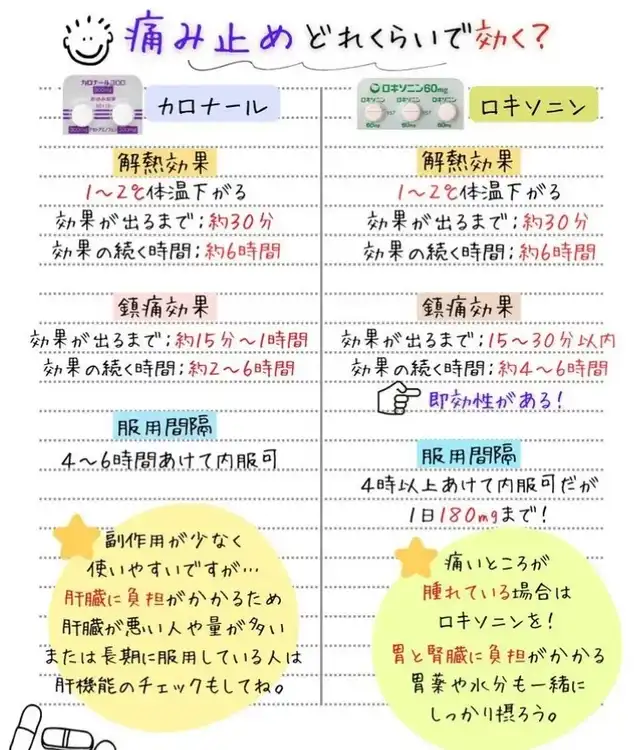 痛み止めどれくらいで効く?
カロナール300
300mg
カロナール
解熱効果
1~2℃体温下がる
効果が出るまで;約30分
効果の続く時間;約6時間
鎮痛効果
効果が出るまで:約15分~1時間
効果の続く時間:約2~6時間
服用間隔
4~6時間あけて内服可
副作用が少なく
使いやすいですが…
肝臓に負担がかかるため
肝臓が悪い人や量が多い
または長期に服用している人は
肝機能のチェックもしてね。
ロキソニン60mg
ロキソニン ロキソニン ロキソニン
60mg 60mg 60mg
ロキソニン
解熱効果
1~2℃体温下がる
効果が出るまで;約30分
効果の続く時間;約6時間
鎮痛効果
効果が出るまで:15~30分以内
効果の続く時間:約4~6時間
即効性がある!
服用間隔
4時以上あけて内服可だが
1日180mgまで!
痛いところが
腫れている場合は
ロキソニンを!
胃と腎臓に負担がかかる
胃薬や水分も一緒に
しっかり摂ろう。